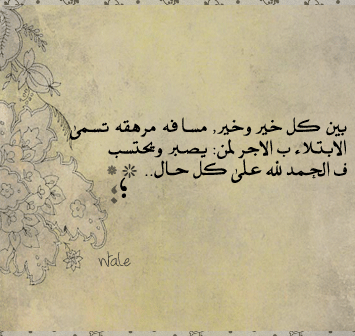 بين كل خير وخير, مسافه مرهقه تسمى
الابتلاء ب الاجر لمن: يصبر ويحتسب
ف الحمد لله على كل حال..